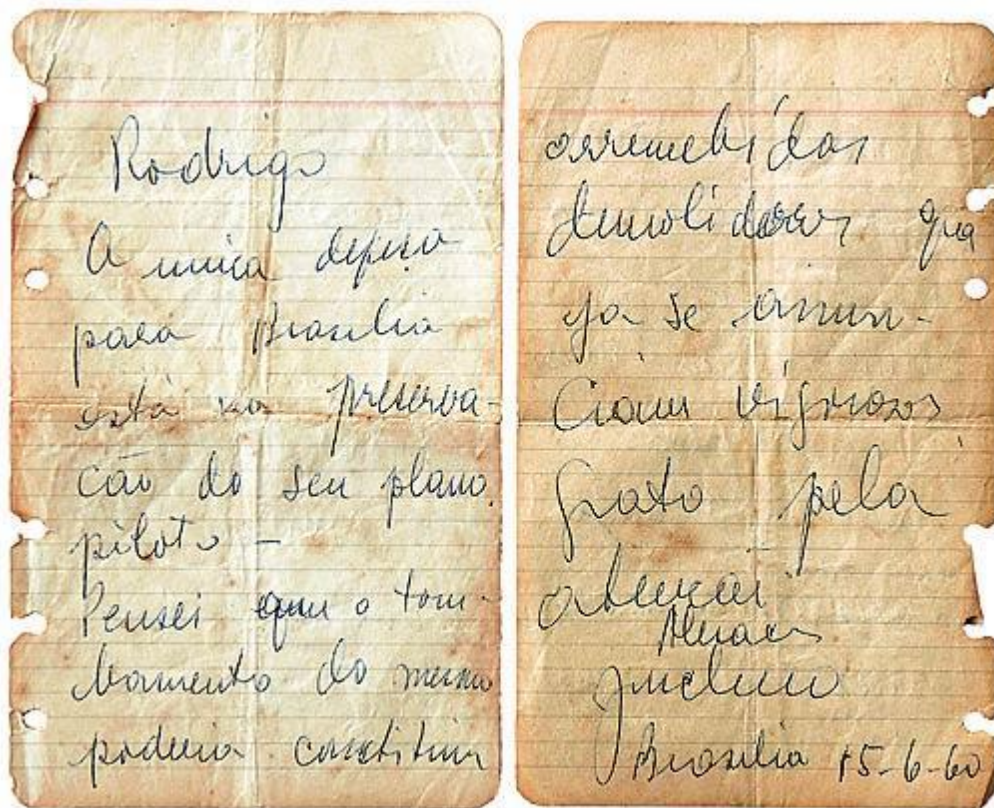 Rodrigo
A unica defesa
para Brasilia
está na preserva-
cão do seu plano
piloto -
Pensei que o tom-
bamento do mesmo
poderia constituir
arremetidas
demolidoras que
ja se anun-
ciam vigorosas
Grato pela
atencão
Abraços
Juscelino
Brasilia 15-6-60